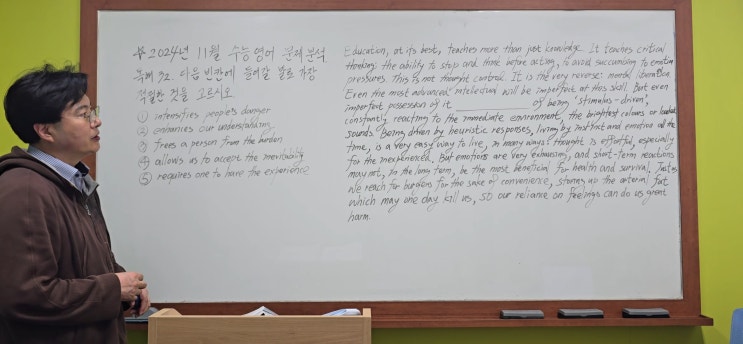 ☆ 2024년 11월 수능 영어 문제 분석
문제 32. 다음 빈칸에 들어갈 말로 가장
적절한 것을 고르시오
① intensifies people's danger
② enhances our understanding
③ frees a person from the burden
④ allows us to accept the inevitability
⑤ requires one to have the experience
Education, at its best, teaches more than just knowledge. It teaches critical
thinking: the ability to stop and think before acting, to avoid succumbing to emotional
pressures. This is not thought control. It is the very reverse: mental liberation.
Even the most advanced intellectual will be imperfect at this skill. But even
imperfect possession of it _____________ of being 'stimulus-driven',
constantly reacting to the immediate environment, the brightest colours or loudest
sounds. Being driven by heuristic responses, living by instinct and emotion all the
time, is a very easy way to live, in many ways: thought is effortful, especially
for the inexperienced. But emotions are very exhausting, and short-term reactions
may not, in the long term, be the most beneficial for health and survival. Just as
we reach for burgers for the sake of convenience, storing up the arterial fat
which may one day kill us, so our reliance on feelings can do us great
harm.